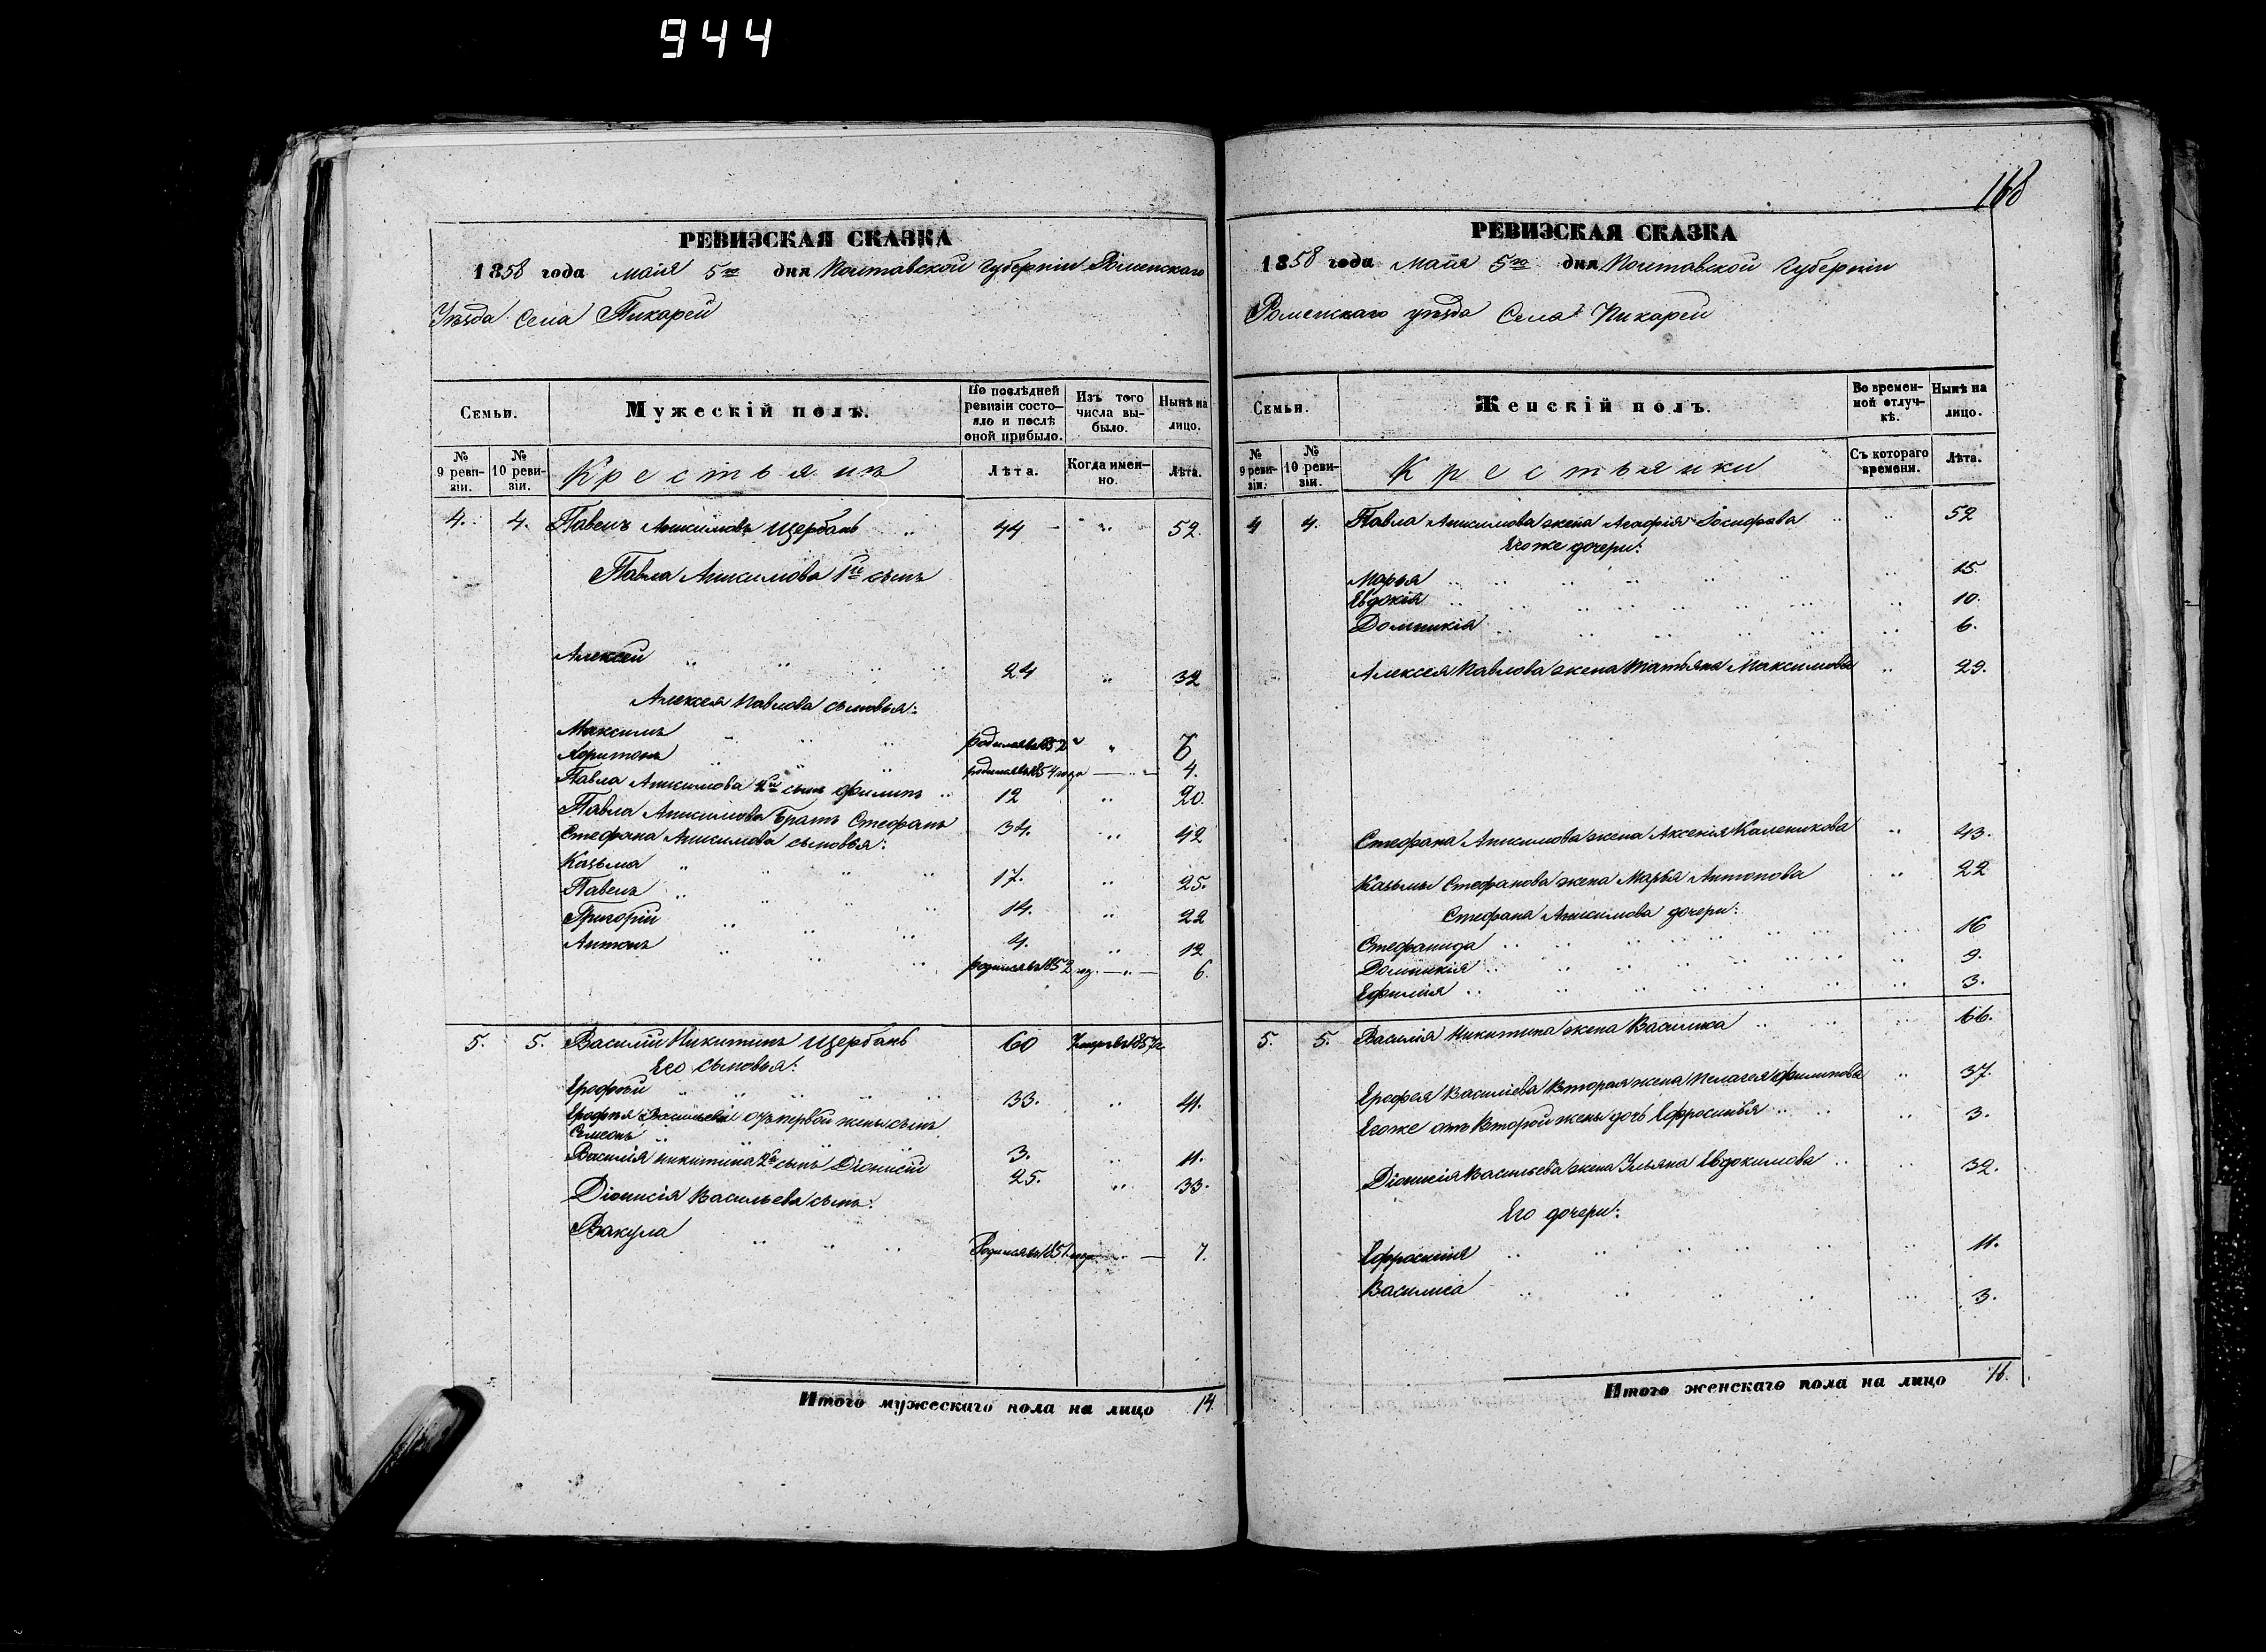 944
РЕВИЗСКАЯ СКАЗКА
1858 года маія 5го дня Полтавской Губерніи Роменскаго
Уѣзда Села Пикарей
Семьи.
Мужескій полъ.
По послѣдней ревизіи состояло и послѣ оной прибыло.
Изъ того числа выбыло.
Нынѣ на лицо.
№ 9 ревизіи.
№ 10 ревизіи.
Крестьянъ
Лѣта.
Когда именно.
Лѣта.
4. 4. Павелъ Анисимовъ Щербань 44 52.
Павла Анисимова 1й сынъ
Алексей 24 32
Алексея Павлова сыновья:
Максимъ родился въ 1852 6
Харитонъ родился въ 1854 года 4.
Павла Анисимова 2й сынъ Филипъ 12 20.
Павла Анисимова Братъ Стефанъ 34. 42
Стефана Анисимова сыновья:
Казьма 17. 25.
Павелъ 14. 22
Григорій 4. 12
Антонъ родился въ 1852 год. 6.
5. 5. Василій Никитинъ Щербань 60 Умеръ въ 1857 г.
Его сыновья:
Ерофѣй 33. 41.
Ерофѣя Васильева отъ первой жены сынъ
Симеонъ 3. 11.
Василія Никитина 2й сынъ Діонисій 25. 33.
Діонисія Васильева сынъ:
Вакула Родился въ 1851 года 7.
Итого мужескаго пола на лицо 14.
168
РЕВИЗСКАЯ СКАЗКА
1858 года Маія 5го дня Полтавской Губерніи
Роменскаго уѣзда Села Пикарей
Семьи.
Женскій полъ.
Во временной отлучкѣ.
Нынѣ на лицо.
№ 9 ревизіи.
№ 10 ревизіи.
Крестьянки
Съ котораго времени.
Лѣта.
4 4. Павла Анисимова жена Агафія Іосифова 52
Его же дочери:
Марья 15.
Евдокія 10.
Домникія 6.
Алексея Павлова жена Татьяна Максимова 29.
Стефана Анисимова жена Аксенія Каленикова 43.
Казьмы Стефанова жена Марья Антонова 22
Стефана Анисимова дочери:
Стефанида 16
Домникія 9.
Ефимія 3.
5. 5. Василія Никитина жена Василиса 66.
Ерофея Василіева вторая жена Пелагея Филипова 37.
Его же отъ второй жены дочь Ефросинья 3.
Діонисія Васильева жена Ульяна Евдокимова 32.
Его дочери:
Ефросинія 11.
Василиса 3.
Итого женскаго пола на лицо 16.